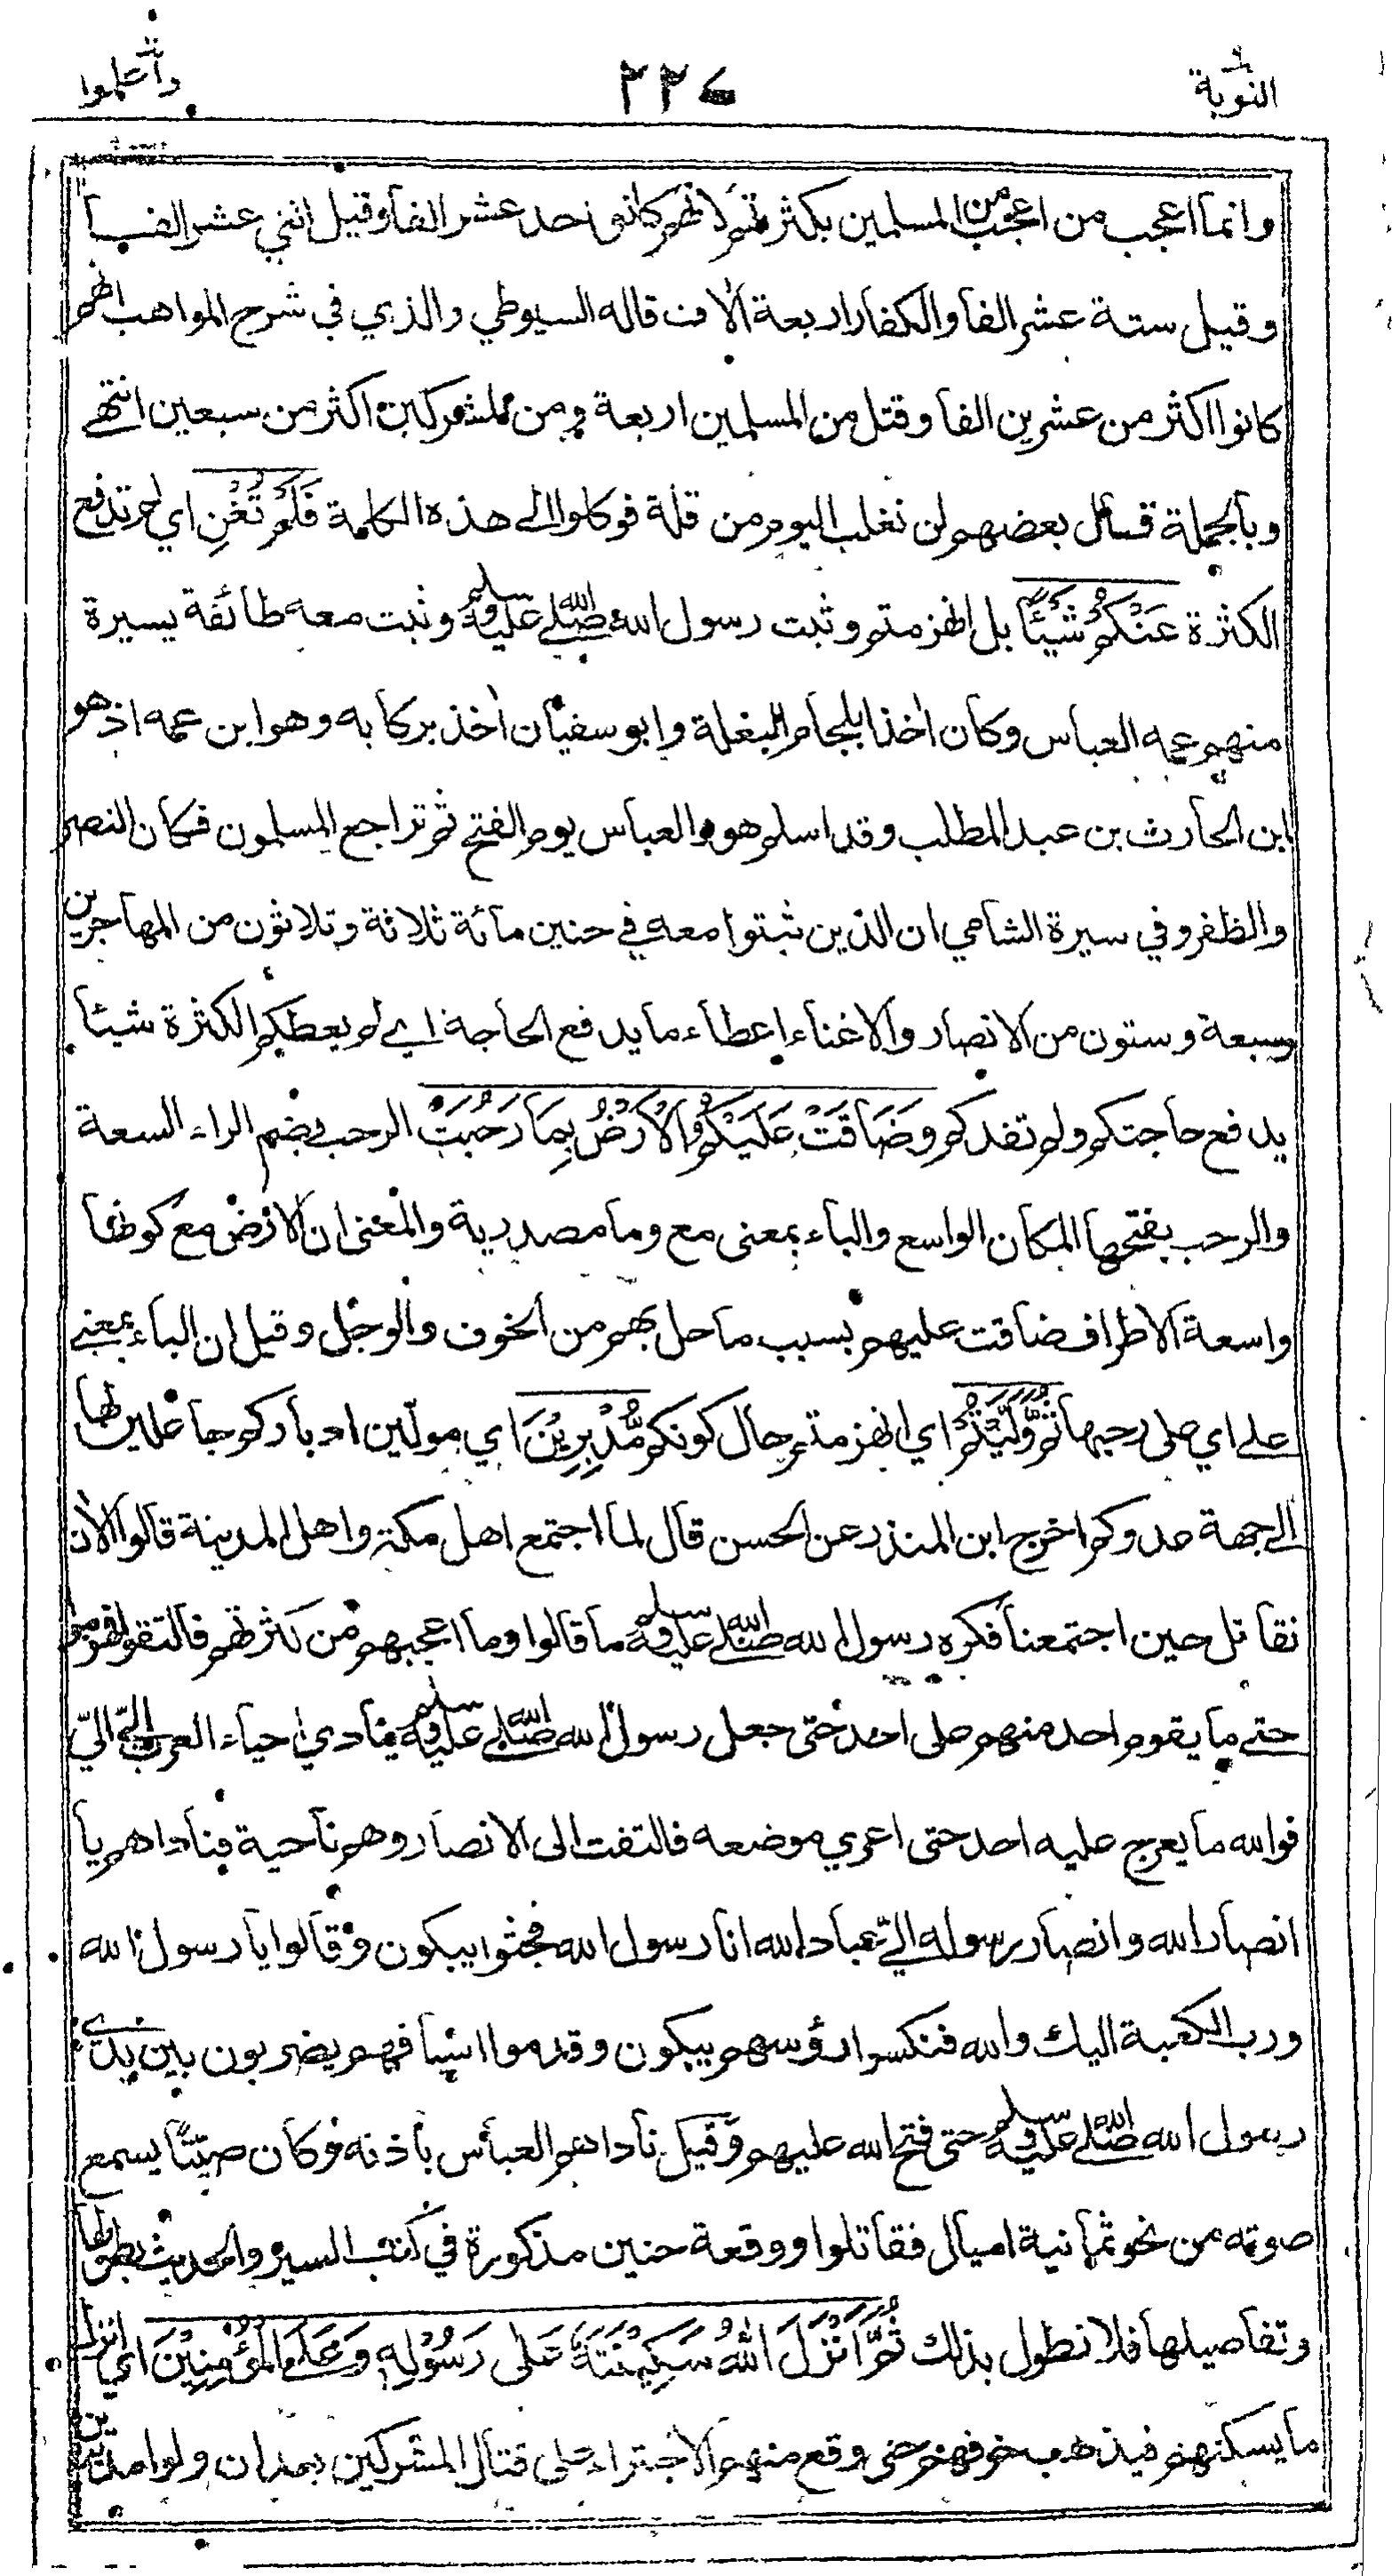 التوبة ٢٢٧ واعلموا
وانما اعجب من اعجب من المسلمين بكثرتهم لانهم كانوا احد عشر الفا وقيل اثني عشر الفا
وقيل ستة عشر الفا والكفار اربعة الاف قاله السيوطي والذي في شرح المواهب انهم
كانوا اكثر من عشرين الفا وقتل من المسلمين اربعة ومن المشركين اكثر من سبعين انتهى
وبالجملة قال بعضهم لن نغلب اليوم من قلة فوكلوا الى هذه الكلمة فَلَمْ تُغْنِ اي لم تدفع
الكثرة عَنْكُمْ شَيْئًا بل انهزمتم وثبت رسول الله صلى الله عليه وسلم وثبت معه طائفة يسيرة
منهم عمه العباس وكان اخذا بلجام البغلة وابو سفيان اخذ بركابه وهو ابن عمه اذ هو
ابن الحارث بن عبد المطلب وقد اسلم هو والعباس يوم الفتح ثم تراجع المسلمون فكان النصر
والظفر وفي سيرة الشامي ان الذين ثبتوا معه في حنين مائة ثلاثة وثلاثون من المهاجرين
وسبعة وستون من الانصار والاغناء اعطاء ما يدفع الحاجة اي لم يعطكم الكثرة شيئا
يدفع حاجتكم ولم تفدكم وَضَاقَتْ عَلَيْكُمُ الْاَرْضُ بِمَا رَحُبَتْ الرحب بضم الراء السعة
والرحب بفتحها المكان الواسع والباء بمعنى مع وما مصدرية والمعنى ان الارض مع كونها
واسعة الاطراف ضاقت عليهم بسبب ما حل بهم من الخوف والوجل وقيل ان الباء بمعنى
على اي على رحبها ثُمَّ وَلَّيْتُمْ اي انهزمتم حال كونكم مُّدْبِرِيْنَ اي مولّين ادباركم جاعلين لها
الى جهة عدوكم اخرج ابن المنذر عن الحسن قال لما اجتمع اهل مكة واهل المدينة قالوا الآن
نقاتل حين اجتمعنا فكره رسول الله صلى الله عليه وسلم ما قالوا وما اعجبهم من كثرتهم فالتقوا فهزموا
حتى ما يقوم احد منهم على احد حتى جعل رسول الله صلى الله عليه وسلم ينادي احياء العرب اليّ اليّ
فوالله ما يعرج عليه احد حتى اعري موضعه فالتفت الى الانصار وهم ناحية فناداهم يا
انصار الله وانصار رسوله اليّ عباد الله انا رسول الله فجثوا يبكون وقالوا يا رسول الله
ورب الكعبة اليك والله فنكسوا رؤسهم يبكون وقدموا اسيافهم يضربون بين يدي
رسول الله صلى الله عليه وسلم حتى فتح الله عليهم وقيل ناداهم العباس باذنه وكان صيّتًا يسمع
صوته من نحو ثمانية اميال فقاتلوا ووقعة حنين مذكورة في كتب السير والحديث بطولها
وتفاصيلها فلا نطول بذلك ثُمَّ اَنْزَلَ اللهُ سَكِيْنَتَهُ عَلٰى رَسُوْلِهٖ وَعَلَى الْمُؤْمِنِيْنَ اي انزل
ما يسكنهم فيذهب خوفهم حتى وقع منهم الاجتراء على قتال المشركين بعد ان ولوا مدبرين